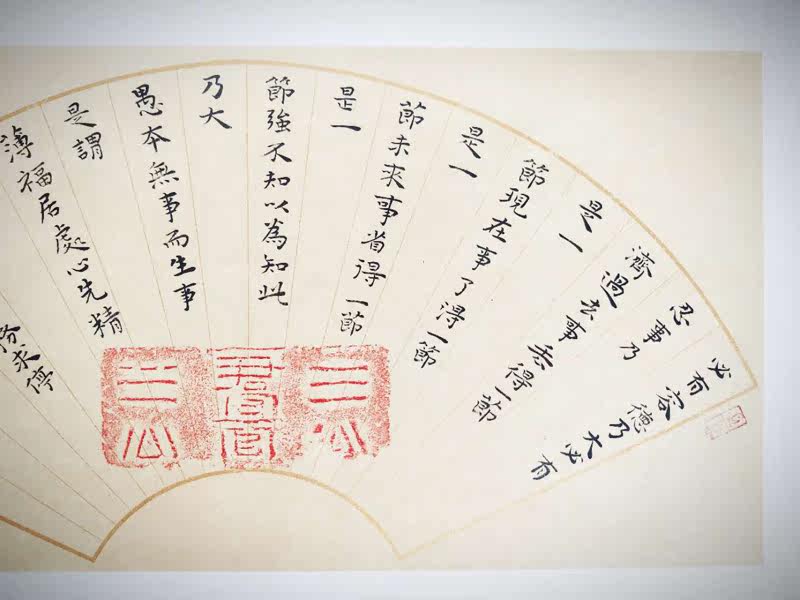 必有容德乃大必有
忍事乃
濟過去事丟得一節
是一
節現在事了得一節
是一
節未來事省得一節
是一
節強不知以為知此
乃大
愚本無事而生事
是謂
薄福居處心先精
務求停